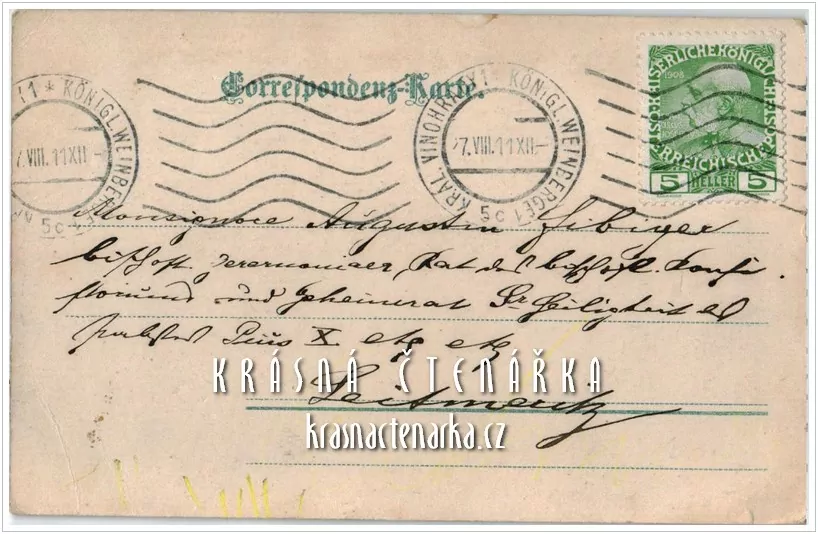 Correspondenz-Karte.
KÖNIGL.WEINBERGE 1
7.VIII.11 XII-
5c
KRÁL.VINOHRADY 1 * KÖNIGL.WEINBERGE 1
27.VIII.11 XII-
* 5c *
KAISERLICHE KÖNIGL
1908
ÖSTERREICHISCHE POST
5 HELLER 5
Monsignore Augustin Fibiger
bischöfl. Zeremoniaer, Rat des bischöfl. Konsi
storiums und Geheimrat Sr Heiligkeit des
Pabstes Pius X. etz etz
Leitmeritz
KRÁSNÁ ČTENÁŘKA
krasnactenarka.cz